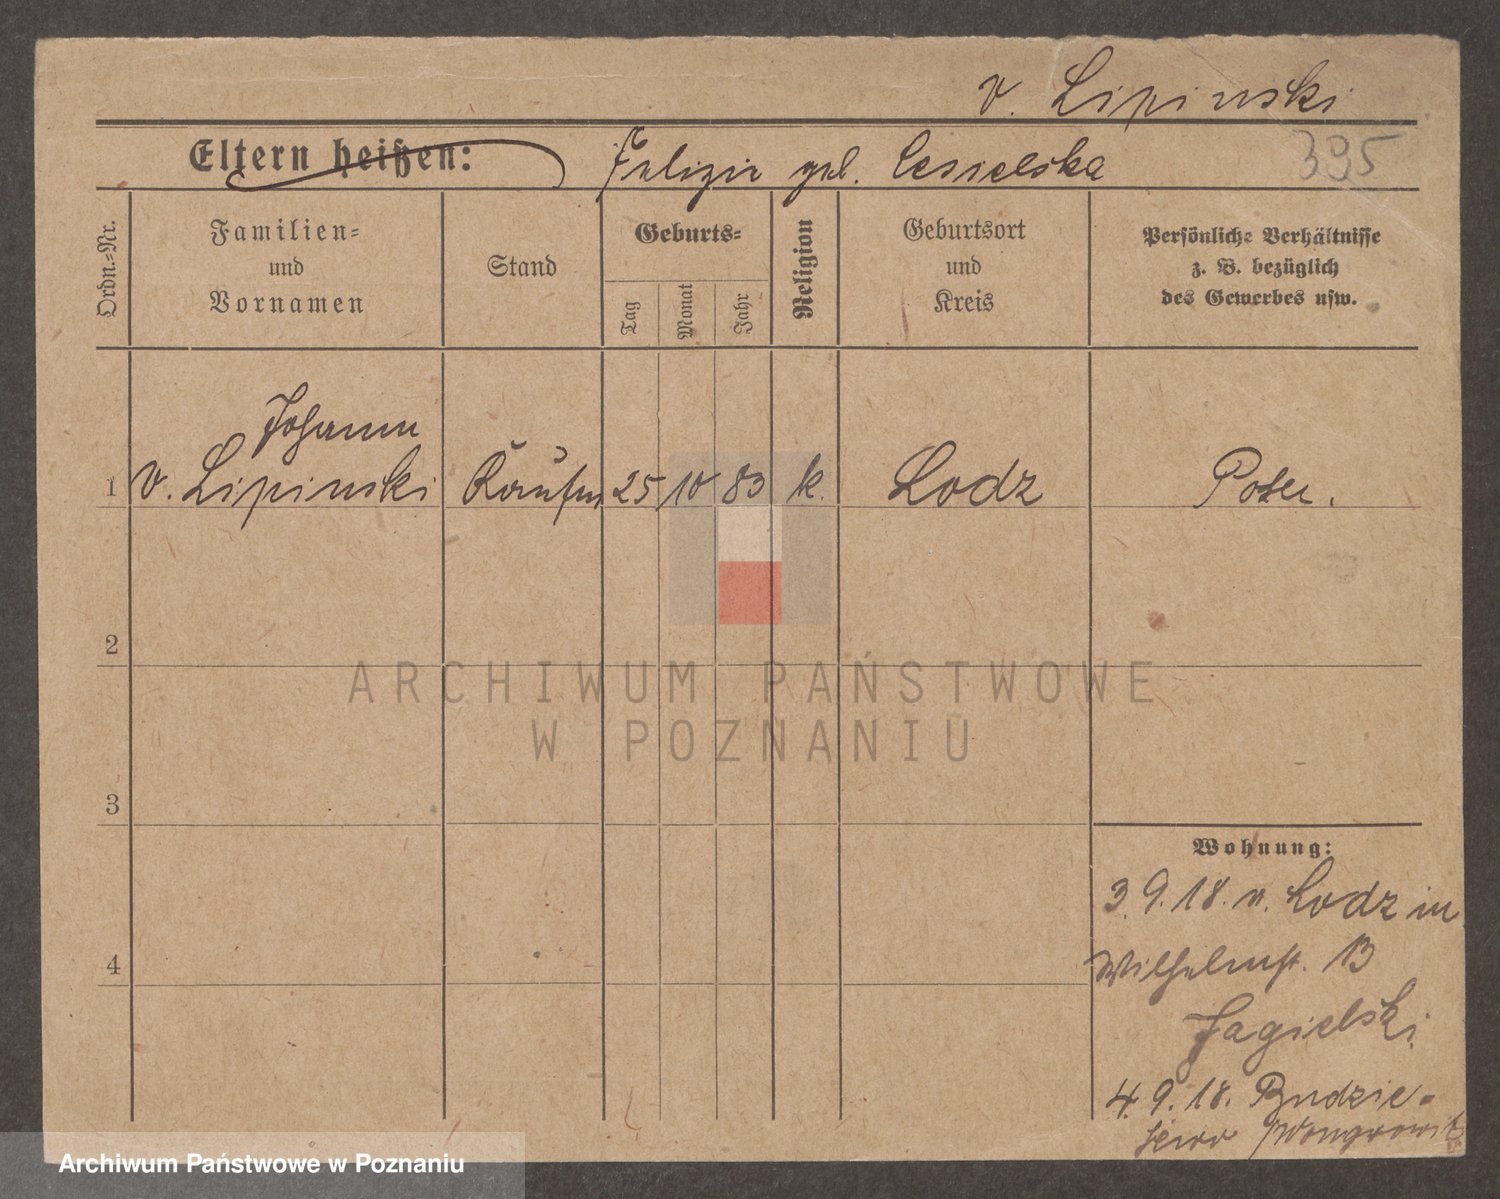 v. Lipinski
Eltern heißen: Felizie geb. Cesielska
395
Ordn.-Nr.
Familien-
und
Vornamen
Stand
Geburts-
Tag
Monat
Jahr
Religion
Geburtsort
und
Kreis
Persönliche Verhältnisse
z. B. bezüglich
des Gewerbes usw.
Johann
1 v. Lipinski Kaufm 25 10 83 k. Lodz
2
3
4
Wohnung:
3. 9. 18. v. Lodz in
Wilhelmst. 13
Jagielski
4. 9. 18. Budzie-
Wongrowitz
ARCHIWUM PAŃSTWOWE
W POZNANIU
Archiwum Państwowe w Poznaniu